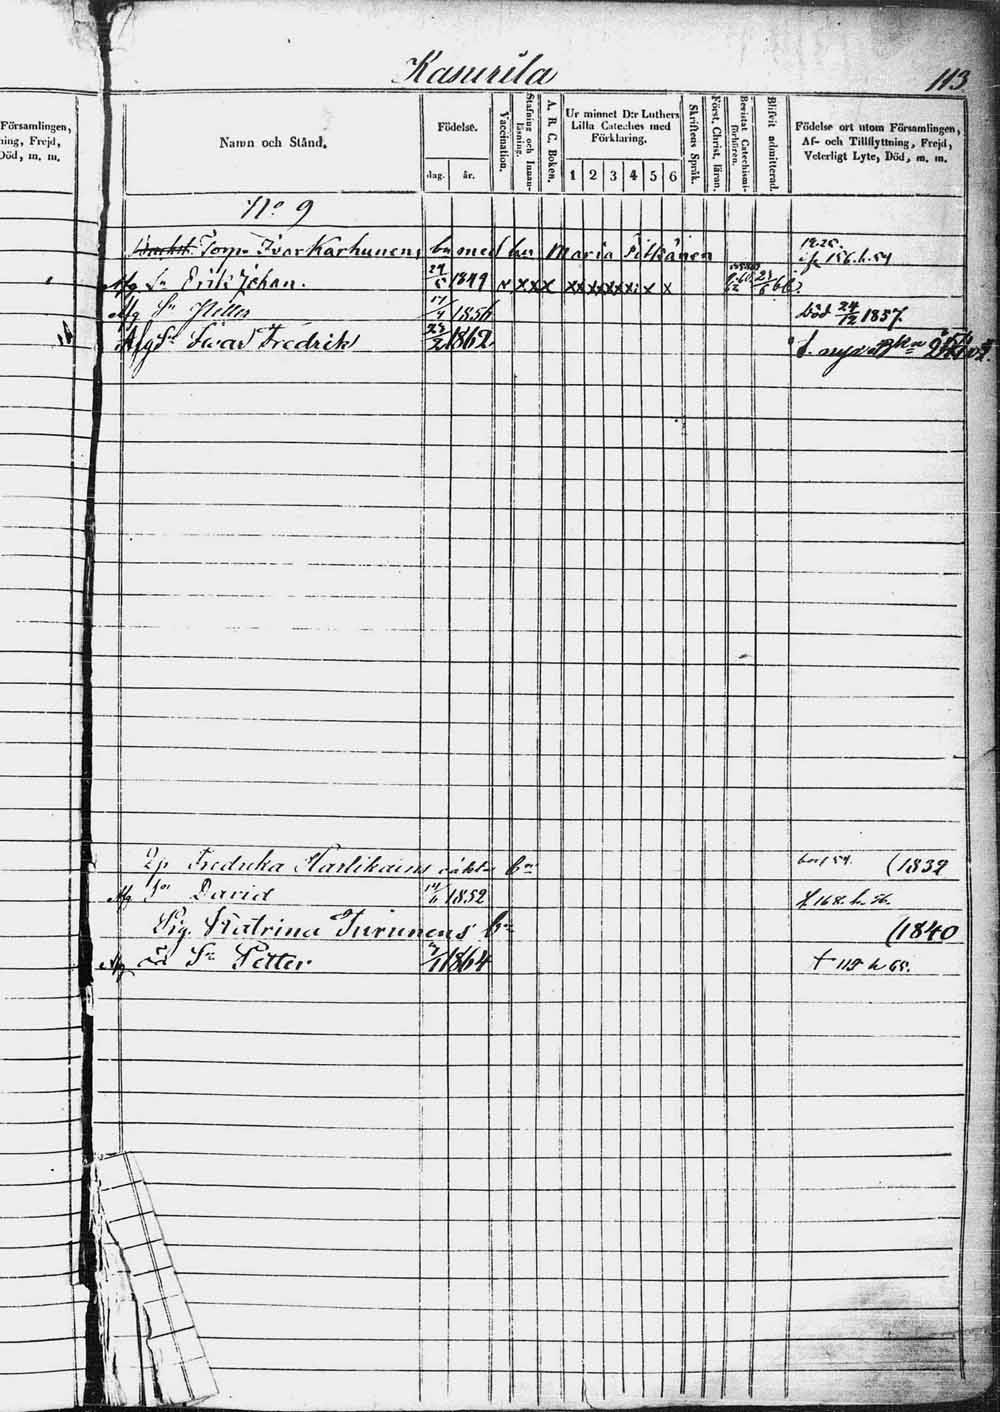 Kasurila
113
Församlingen,
ning, Frejd,
Död, m. m.
Namn och Stånd.
Födelse.
dag. år.
Vaccination.
Stafning och Innanläsning.
A. B. C. Boken.
Ur minnet D:r Luthers Lilla Cateches med Förklaring.
1 2 3 4 5 6
Skriftens Språk.
Först. Christ. läran.
Bevistat Catechismiförhören.
Blifvit admitterad.
Födelse ort utom Församlingen,
Af- och Tillflyttning, Frejd,
Veterligt Lyte, Död, m. m.
No 9
Torp. Ivar Karhunens bn med hu Maria Pitkänen 156. h. 54
Afg Sn Erik Johan. 1849 x x x x x x x x x x x x
Afg Sn Petter 1856 död 24/12 1857
Afg Sn Ivar Fredrik 23/2 1862
Fredrika Karlikains oäkta bn (1832
Afg Sn David 1852 168. h.
Pig. Katrina Turunens bn (1840
Afg Sn Petter 1864 † 119 h 65.